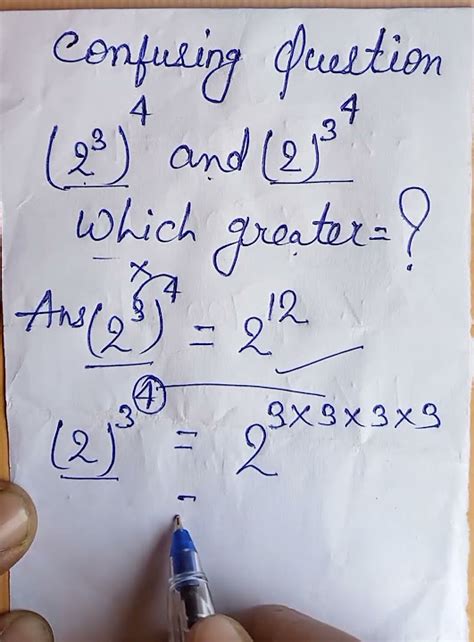 Confusing Question
(2³)⁴ and (2)³^⁴
Which greater=?
Ans (2³)⁴ = 2¹²
(2)³^④ = 2³ˣ³ˣ³ˣ³
=